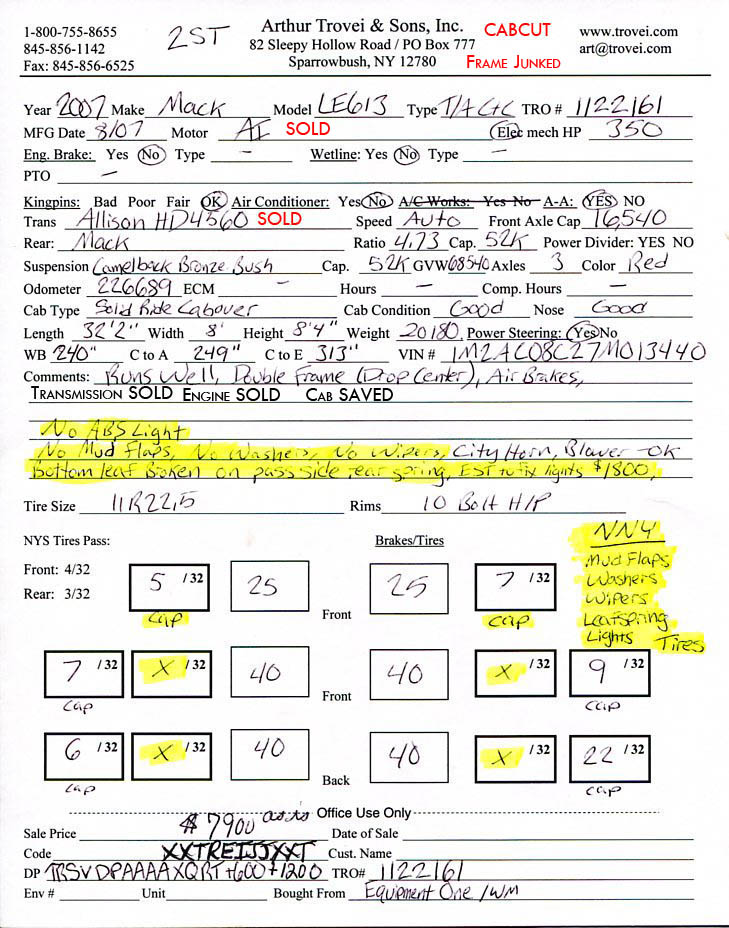 1-800-755-8655
845-856-1142
Fax: 845-856-6525
2ST
Arthur Trovei & Sons, Inc.
82 Sleepy Hollow Road / PO Box 777
Sparrowbush, NY 12780
CABCUT
FRAME JUNKED
www.trovei.com
art@trovei.com
Year 2007 Make Mack Model LE613 Type T/A C+C TRO # 1122161
MFG Date 8/07 Motor AI SOLD Elec mech HP 350
Eng. Brake: Yes No Type - Wetline: Yes No Type -
PTO -
Kingpins: Bad Poor Fair OK Air Conditioner: Yes No A/C Works: Yes No A-A: YES NO
Trans Allison HD4560 SOLD Speed Auto Front Axle Cap 16,540
Rear: Mack Ratio 4.73 Cap. 52K Power Divider: YES NO
Suspension Camelback Bronze Bush Cap. 52K GVW 68540 Axles 3 Color Red
Odometer 226689 ECM - Hours - Comp. Hours -
Cab Type Solid Ride Cabover Cab Condition Good Nose Good
Length 32'2" Width 8' Height 8'4" Weight 20180 Power Steering: Yes No
WB 240" C to A 249" C to E 313" VIN # 1M2AC08C27M013440
Comments: Runs Well, Double Frame (Drop Center), Air Brakes,
TRANSMISSION SOLD ENGINE SOLD CAB SAVED
No ABS Light
No Mud Flaps, No Washers, No Wipers, City Horn, Blower -OK
Bottom leaf Broken on pass side rear spring, EST to fix lights $1800,
Tire Size 11R22.5 Rims 10 Bolt H/P
NYS Tires Pass: Brakes/Tires
Front: 4/32
Rear: 3/32
5 /32 25 Front 25 7 /32
cap cap
NNY
Mud Flaps
Washers
Wipers
Leafspring
Lights Tires
7 /32 X /32 40 Front 40 X /32 9 /32
cap cap
6 /32 X /32 40 Back 40 X /32 22 /32
cap cap
Office Use Only
Sale Price $7900 as is Date of Sale
Code XXTREIJJXXT Cust. Name
DP TRSVDPAAAAXQRT+600+1200 TRO# 1122161
Env # Unit Bought From Equipment One /WM